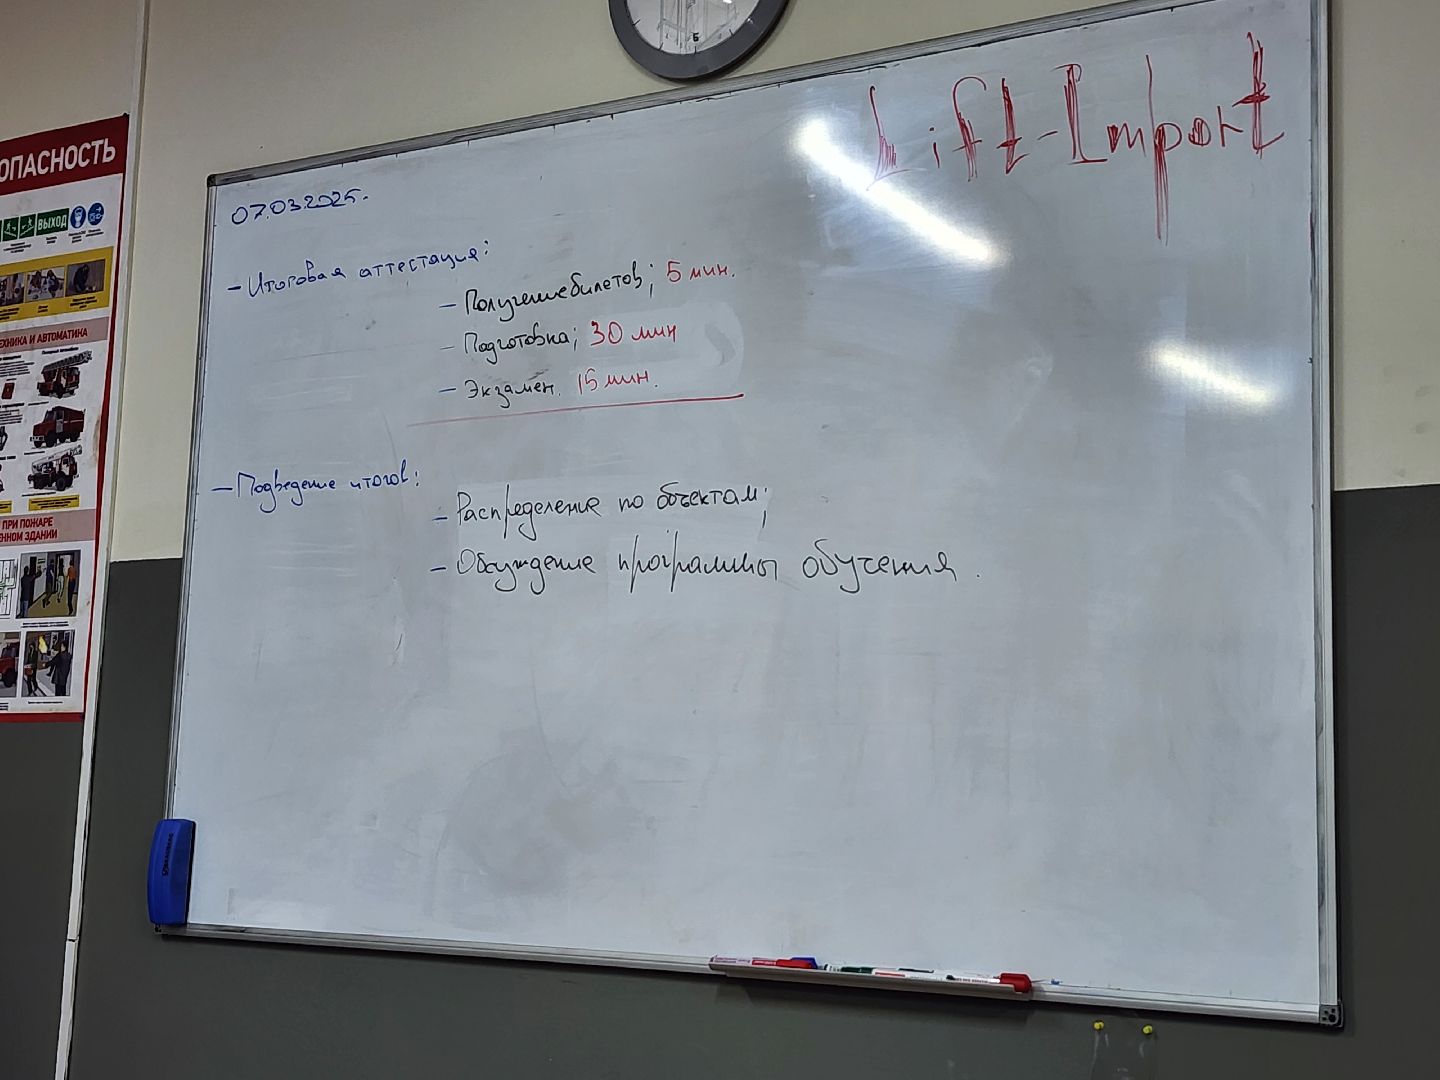 Б
Lift-Import
07.03.2025.
- Итоговая аттестация:
- Получение билетов; 5 мин.
- Подготовка; 30 мин
- Экзамен. 15 мин.
- Подведение итогов:
- Распределение по объектам;
- Обсуждение программы обучения.
ОПАСНОСТЬ
ВЫХОД
ТЕХНИКА И АВТОМАТИКА
ПРИ ПОЖАРЕ
ЕННОМ ЗДАНИИ